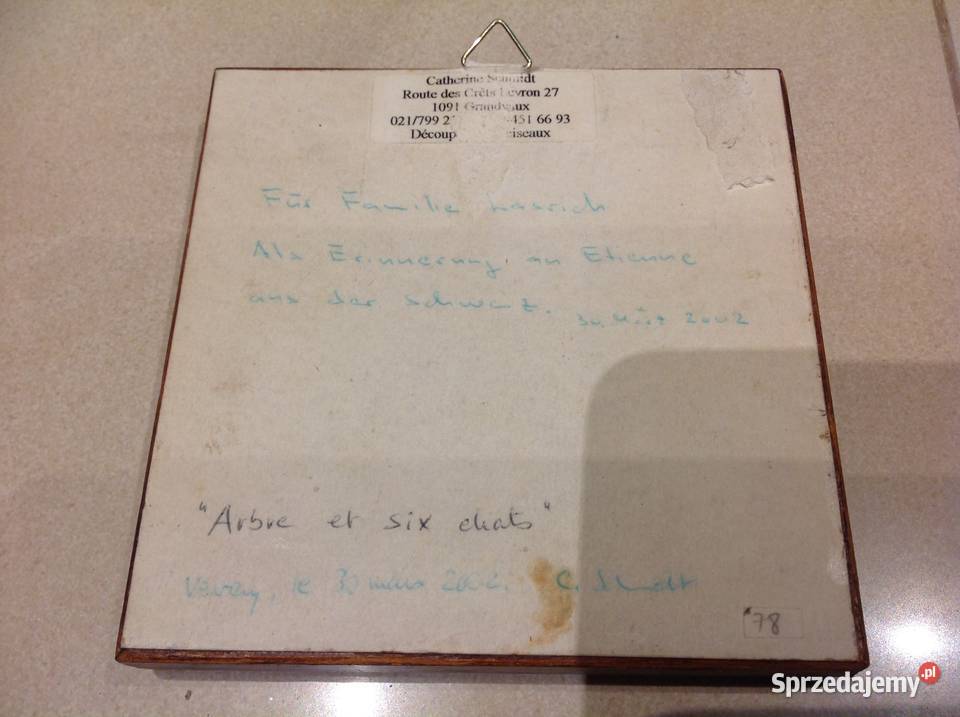 Catherine Schmidt
Route des Crêts Leyron 27
1091 Grandvaux
021/799 2 451 66 93
Découp ciseaux
Für Familie
Als Erinnerung an Etienne
aus der Schweiz. 30. März 2002
"Arbre et six chats"
Vevey, le 30 mars 2002. C. Schmidt
78
Sprzedajemy.pl